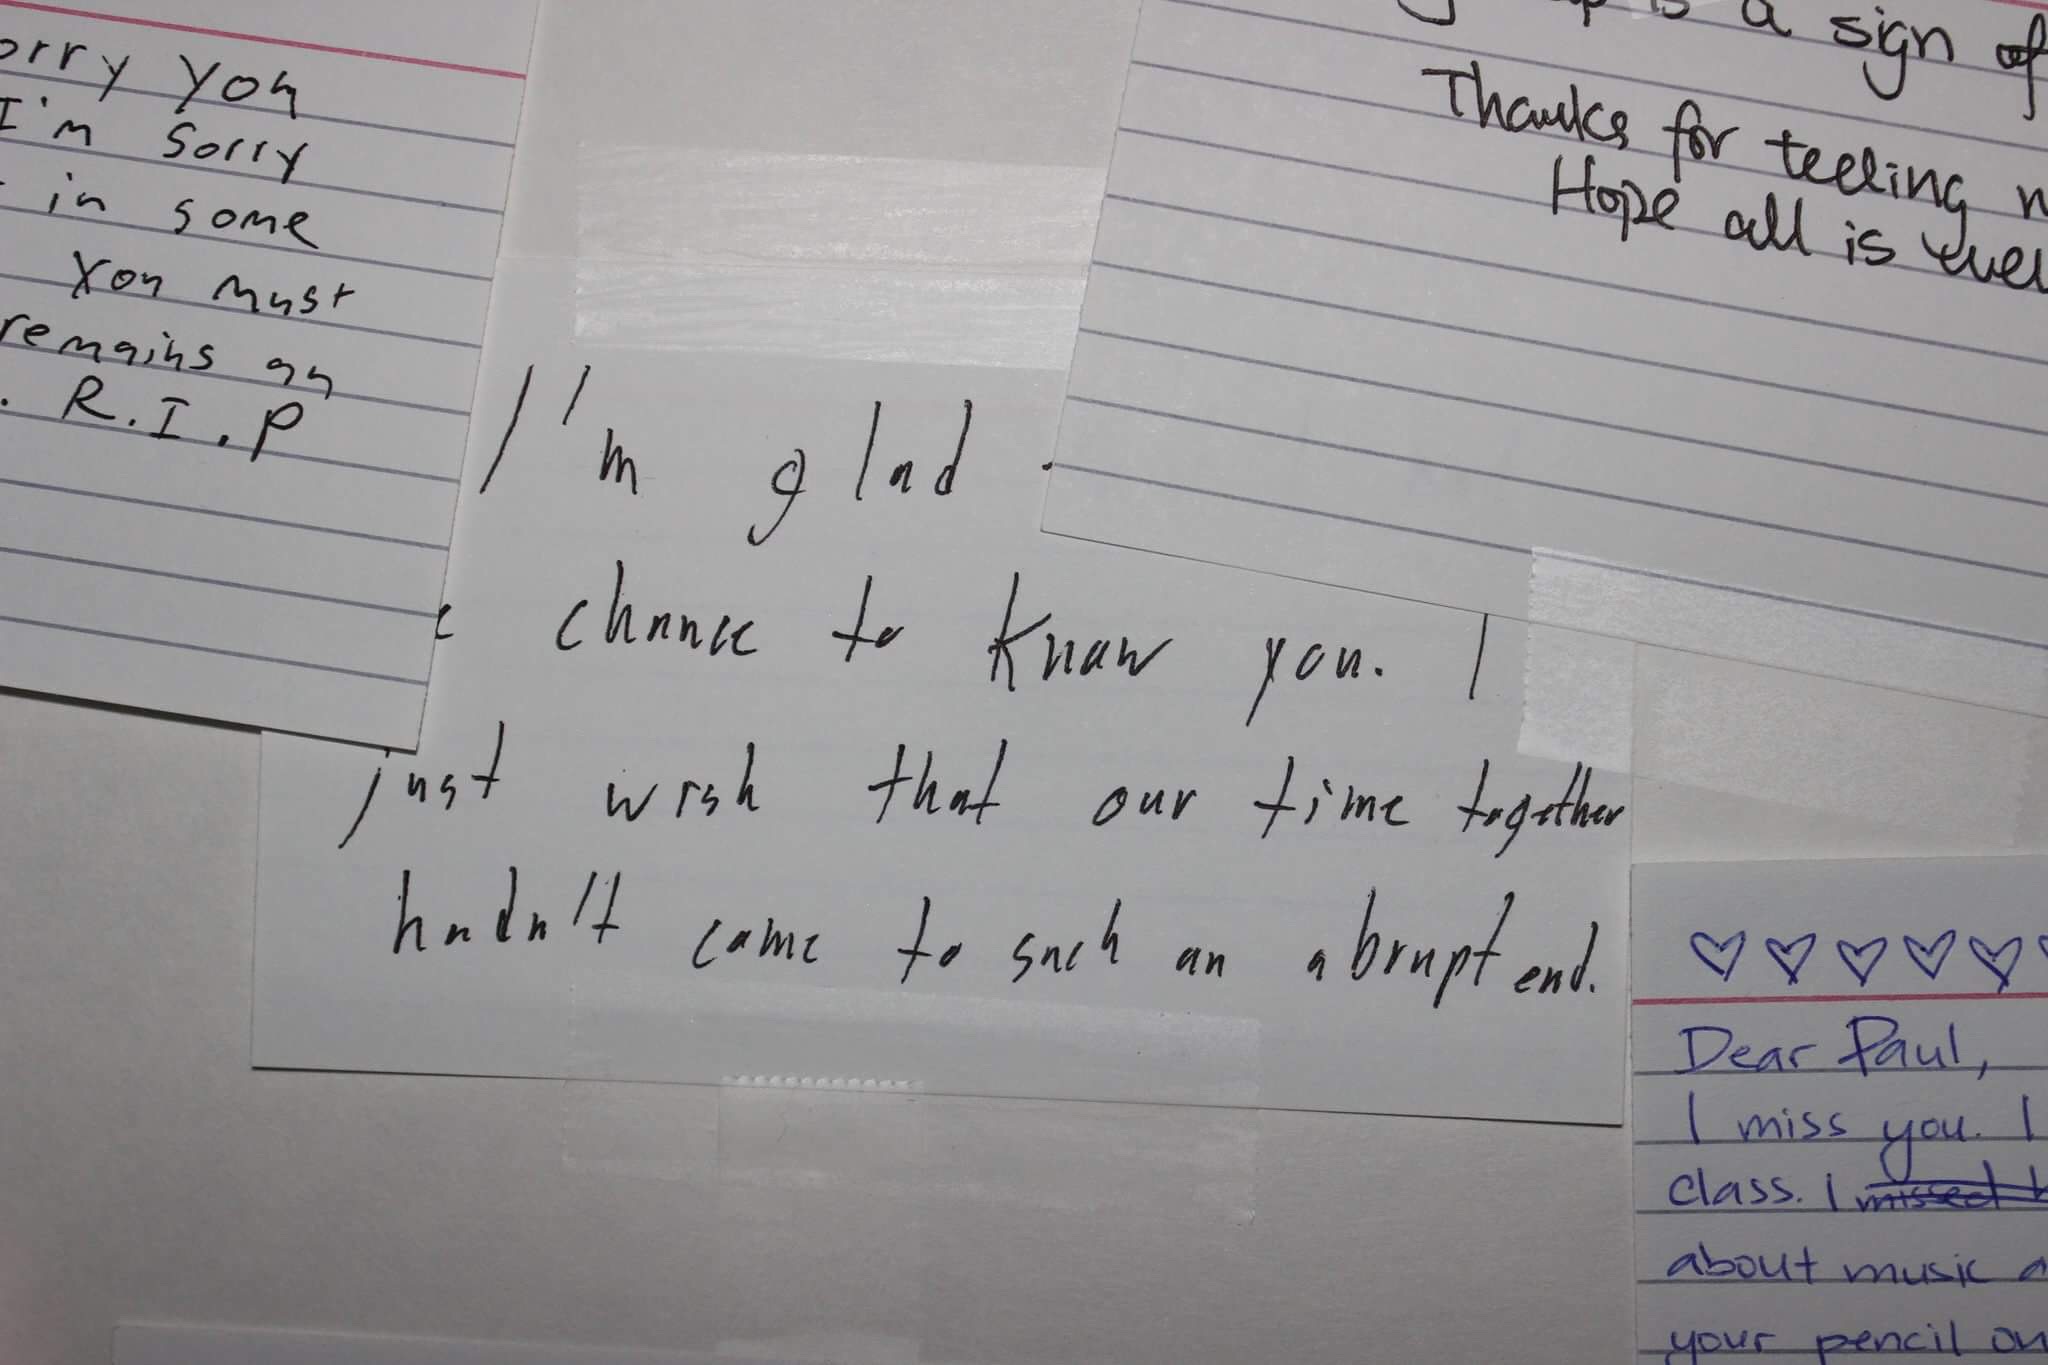 orry you
I'm sorry
in some
You must
remains an
. R.I.P
is a sign of
Thanks for telling
Hope all is well
I'm glad
chance to know you. I
just wish that our time together
hadn't came to such an abrupt end.
♡♡♡♡♡
Dear Paul,
I miss you. I
class. I missed
about music a
your pencil on